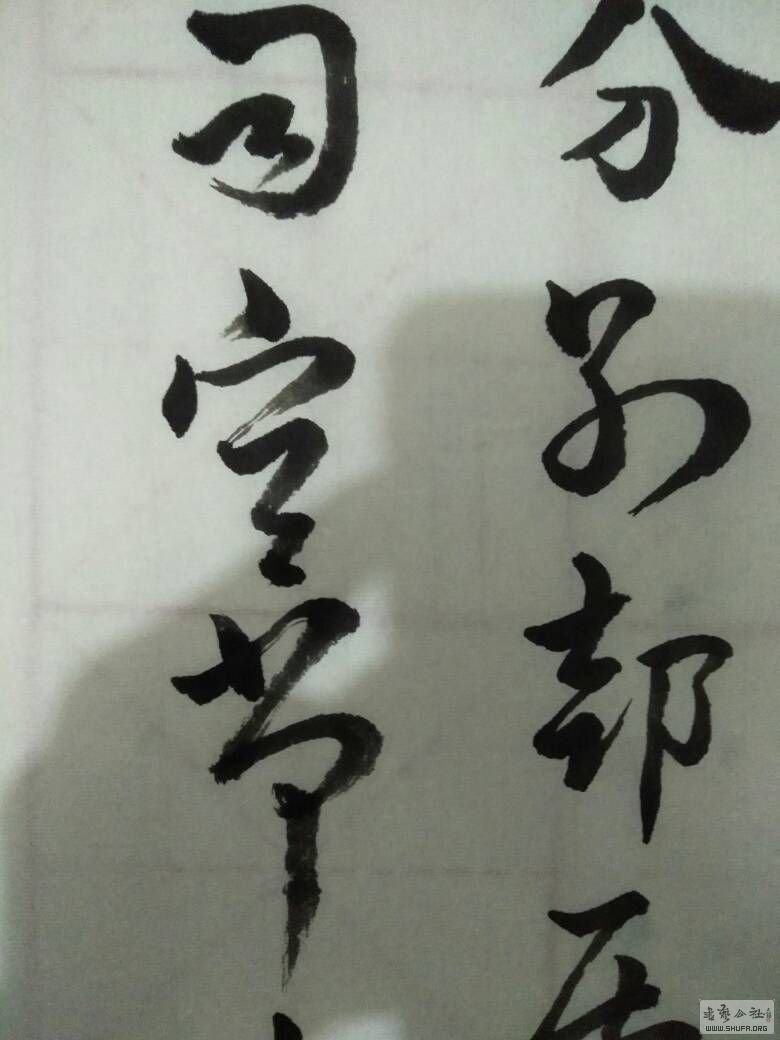 分别部居
司空节
书艺公社
WWW.SHUFA.ORG